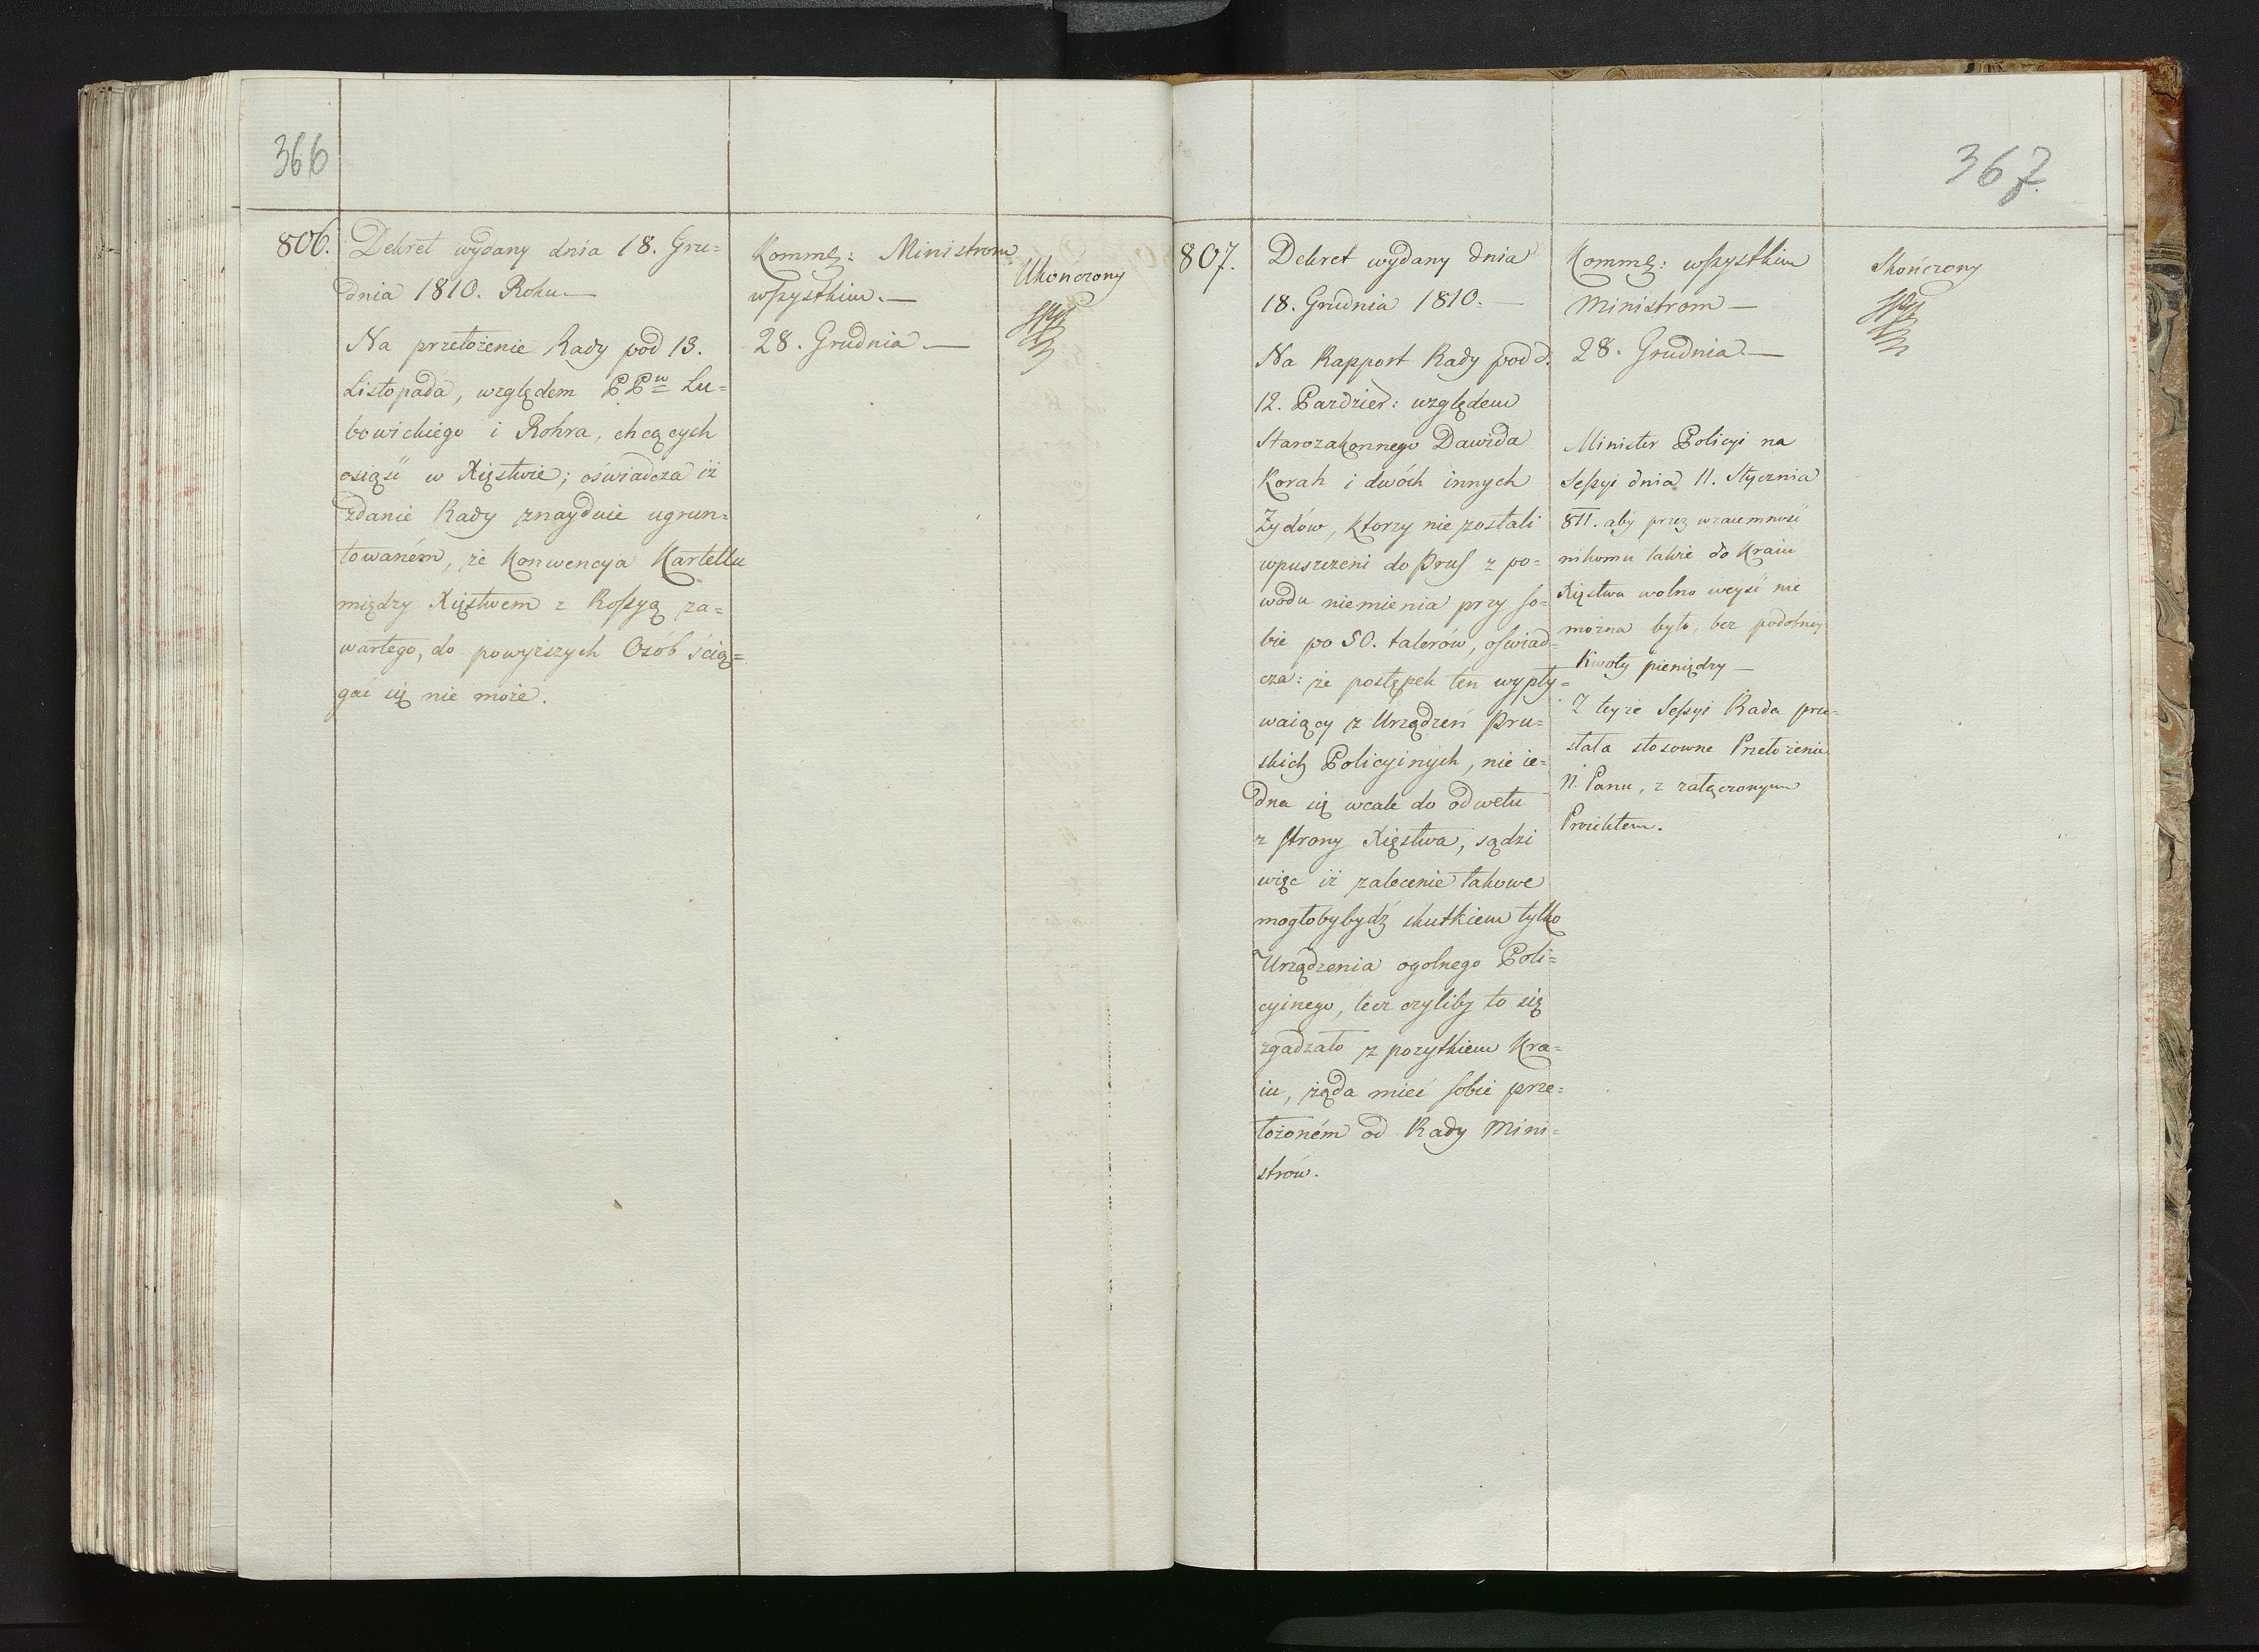 366
806.
Dekret wydany dnia 18. Gru=
dnia 1810. Roku—
Na przełożenie Rady pod 13.
Listopada, względem PPw Lu=
bowickiego i Rohra, chcących
osiąść w Xięstwie; oświadcza iż
zdanie Rady znayduie ugrun=
towaném, że Konwencya Kartellu
między Xięstwem z Rossyą za=
wartego, do powyższych Osób ścią=
gać się nie może.
Kommk: Ministrom
wszystkim.—
28. Grudnia.—
Ukończony
367
807.
Dekret wydany dnia
18. Grudnia 1810.—
Na Rapport Rady pod d.
12. Pazdzier: względem
Starozakonnego Dawida
Korah i dwóch innych
Żydów, ktorzy nie zostali
wpuszczeni do Prus z po=
wodu niemienia przy so=
bie po 50. talerów, oświad=
cza: że postępek ten wypły=
waiący z Urządzeń Pru=
skich Policyinych, nie ie=
dna się wcale do odwetu
z strony Xięstwa, sądzi
więc iż zalecenie takowe
mogłobybydź skutkiem tylko
Urządzenia ogolnego Poli=
cyinego, lecz czyliby to się
zgadzało z pożytkiem Kra=
iu, żąda mieć sobie prze=
łożoném od Rady Mini=
strów.
Kommk: wszystkim
Ministrom—
28. Grudnia.—
Minister Policyi na
Sessyi dnia 11. Stycznia
811. aby przez wzaiemność
nikomu także do Kraiu
Xięstwa wolno weyść nie
można było, bez podobney
kwoty pieniędzy—
Z teyże Sessyi Rada prze=
słała stosowne Przełożenie
N. Panu, z załączonym
Proiektem.
Skończony